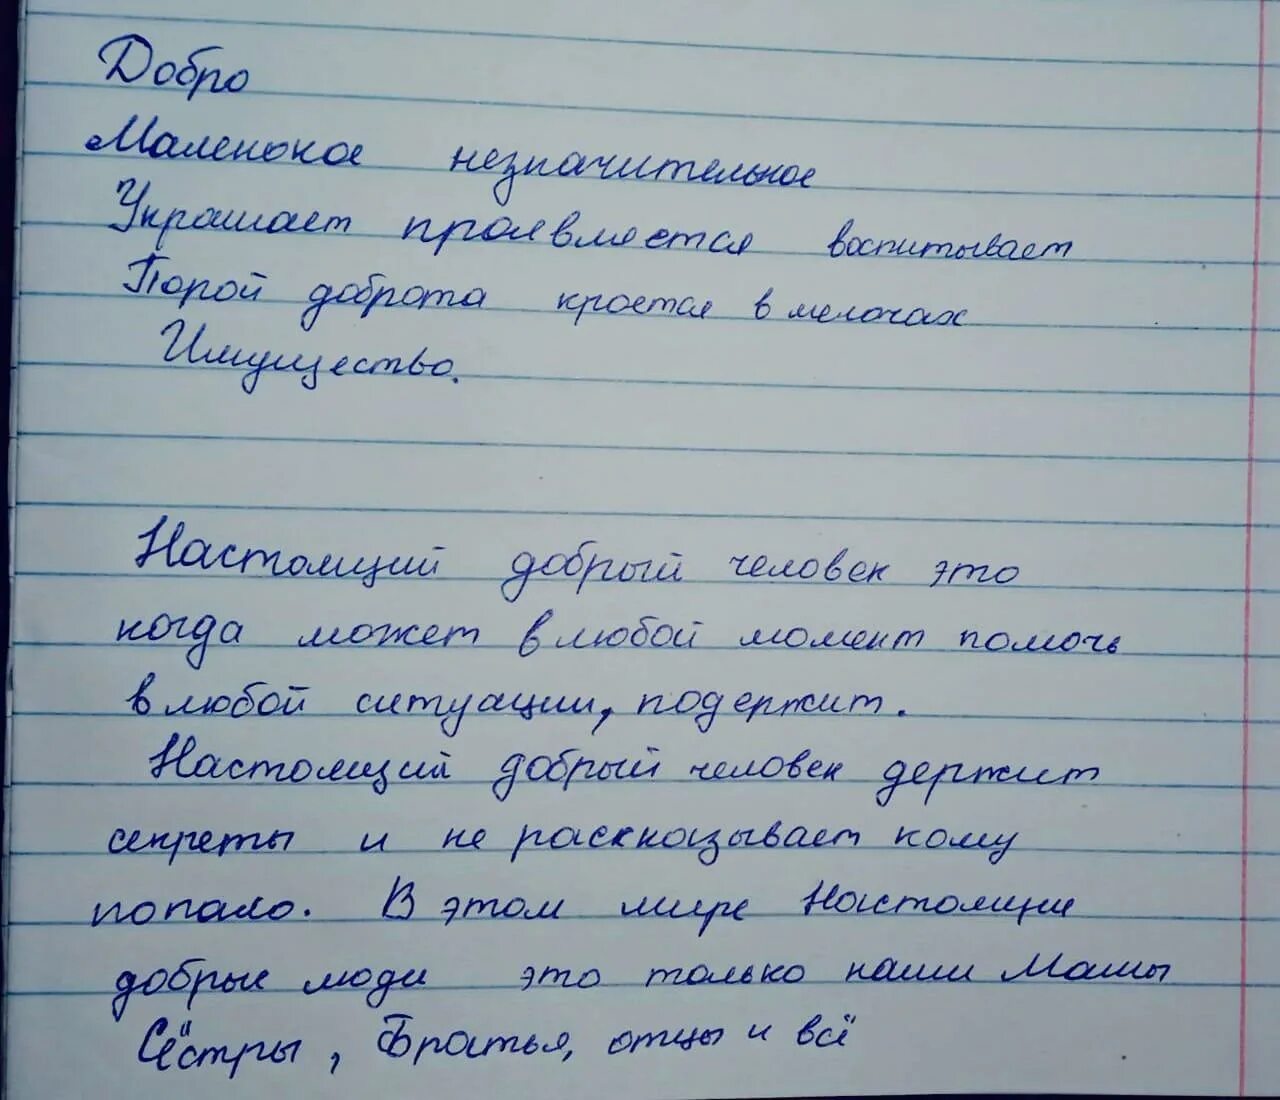 Добро
Маленькое незначительное
Украшает проявляется воспитывает
Порой доброта кроется в мелочах
Имущество.
Настоящий добрый человек это
когда может в любой момент помочь
в любой ситуации, подержит.
Настоящий добрый человек держит
секреты и не расказывает кому
попало. В этом мире Настоящие
добрые люди это только наши Мамы
Сёстры, Братья, отцы и всё